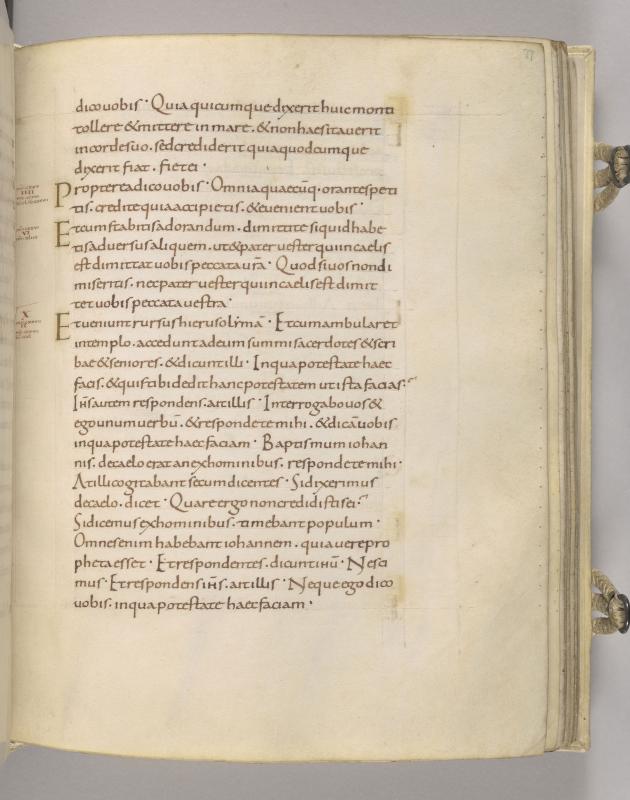 77
dico vobis · Quia quicumque dixerit huic monti
tollere & mittere in mare . & non haesitaverit
in corde suo . sed crediderit quia quodcumque
dixerit fiat . fiet ei ·
Propterea dico vobis · Omnia quaecūq· orantes peti
tis . credite quia accipietis . & evenient vobis ·
Et cum stabitis ad orandum . dimittite si quid habe
tis adversus aliquem . ut & pater vester qui in caelis
est dimittat vobis peccata vr̄a · Quod si vos non di
miseritis . nec pater vester qui in caelis est dimit
tet vobis peccata vestra ·
Et veniunt rursus hierusolimā · Et cum ambularet
in templo . accedunt ad eum summi sacerdotes & scri
bae & seniores . & dicunt illi · In qua potestate haec
facis . & quis tibi dedit hanc potestatem ut ista facias ·
Ihs̄ autem respondens . ait illis · Interrogabo vos &
ego unum verbū . & respondete mihi . & dicā vobis
in qua potestate haec faciam · Baptismum iohan
nis . de caelo erat an ex hominibus . respondete mihi ·
At illi cogitabant secum dicentes · Si dixerimus
de caelo . dicet · Quare ergo non credidistis ei ·
Si dicemus ex hominibus . timebant populum ·
Omnes enim habebant iohannem . quia vere pro
pheta esset · Et respondentes . dicunt ihū · Nesci
mus · Et respondens ihs̄ . ait illis · Neque ego dico
vobis . in qua potestate haec faciam ·